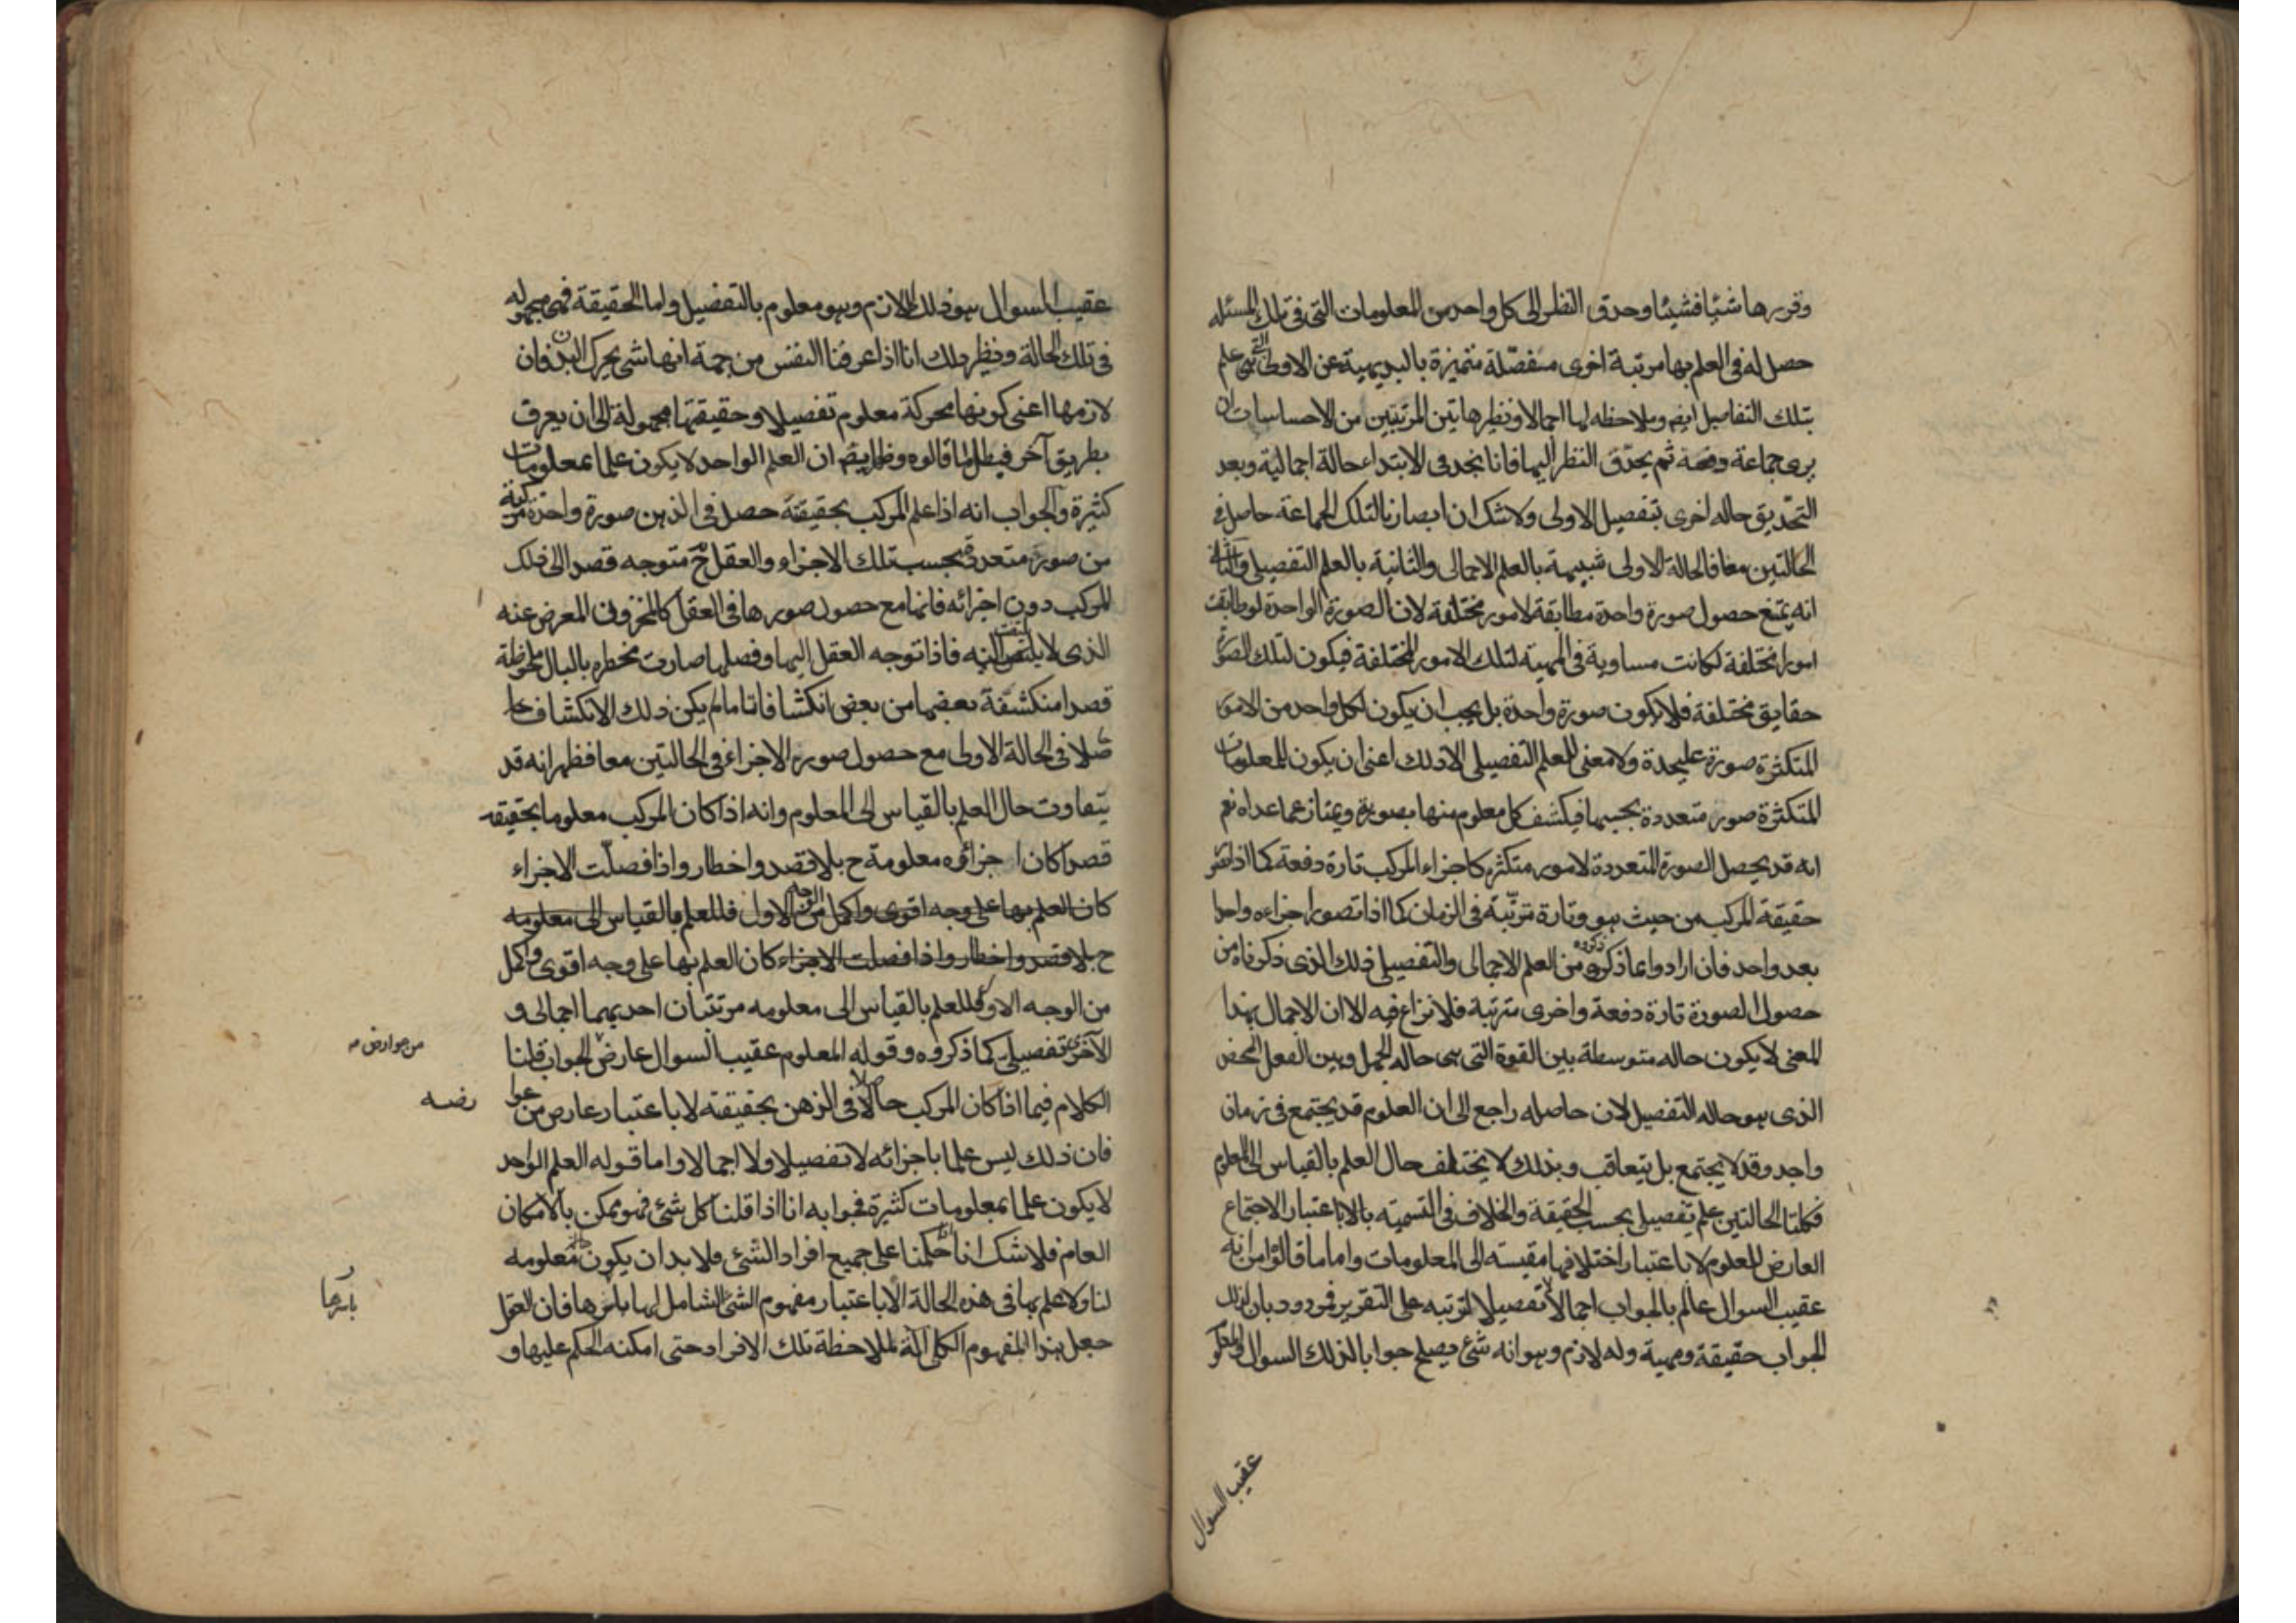 وقررها شيئا فشيئا وحدق النظر الى كل واحد من المعلومات التى فى تلك المسئله
حصل له فى العلم بها مرتبة اخرى منفصّلة متميزة بالبديهية عن الاولى التى هى علم
بتلك التفاصيل ايضا وملاحظه لها اجمالا ونظير هاتين المرتبتين من الاحساسات ان
يرى جماعة دفعة ثم يحدّق النظر اليها فانا نجد فى الابتداء حالة اجمالية وبعد
التحديق حاله اخرى بتفصيل الاولى ولا شك ان ابصارنا لتلك الجماعة حاصل فى
الحالتين معا فالحالة الاولى شبيهة بالعلم الاجمالى والثانية بالعلم التفصيلى والثانى
انه يمتنع حصول صورة واحدة مطابقة لامور مختلفة لان الصورة الواحدة لو طابقت
امورا مختلفة لكانت مساوية فى المهية لتلك الامور المختلفة فيكون لتلك الصورة
حقايق مختلفة فلا يكون صورة واحدة بل يجب ان يكون لكل واحد من الامور
المتكثرة صورة عليحدة ولا معنى للعلم التفصيلى الا ذلك اعنى ان يكون للمعلومات
المتكثرة صور متعددة بحسبها فيكشف كل معلوم منها بصورة ويمتاز عما عداه نعم
انه قد يحصل الصورة المتعددة لامور متكثره كاجزاء المركب تارة دفعة كما اذا تصور
حقيقة المركب من حيث هو وتارة مترتّبة فى الزمان كما اذا تصور اجزاءه واحدا
بعد واحد فان ارادوا بما ذكروه من العلم الاجمالى والتفصيلى ذلك الذى ذكرناه من
حصول الصورة تارة دفعة واخرى مترتبة فلا نزاع فيه الا ان الاجمال بهذا
المعنى لا يكون حاله متوسطة بين القوة التى هى حاله الجهل وبين الفعل المحض
الذى هو حاله التفصيل لان حاصله راجع الى ان العلوم قد يجتمع فى زمان
واحد وقد لا يجتمع بل يتعاقب وبذلك لا يختلف حال العلم بالقياس الى المعلوم
فكلتا الحالتين علم تفصيلى بحسب الحقيقة والخلاف فى التسمية بالاباعتبار الاجتماع
العارض للعلوم لا باعتبار اختلافها مقيسه الى المعلومات واما ما قالوا من انه
عقيب السوال عالم بالجواب اجمالا لا تفصيلا لترتبه على التقرير فمردود بان لذلك
الجواب حقيقة ومهية وله لازم وهو انه شئ يصلح جوابا لذلك السوال والمعلوم
عقيب السوال
عقيب السوال هو ذلك اللازم وهو معلوم بالتفصيل واما الحقيقة فهى مجهوله
فى تلك الحالة ونظير ذلك انا اذا عرفنا النفس من جهة انها شئ يحرك البدن فان
لازمها اعنى كونها محركة معلوم تفصيلا وحقيقتها مجهولة الى ان يعرف
بطريق آخر فبطل ما قالوه وظهر ايضا ان العلم الواحد لا يكون علما بمعلومات
كثيرة والجواب انه اذا علم المركب بحقيقة حصل فى الذهن صورة واحدة مركبة
من صور متعددة بحسب تلك الاجزاء والعقل ح متوجه قصدا الى ذلك
المركب دون اجزائه فانها مع حصول صورها فى العقل كالمخزون المعرض عنه
الذى لا يلتفت اليه فاذا توجه العقل اليها وفصلها صارت مخطره بالبال ملحوظة
قصدا منكشفة بعضها من بعض انكشافا تاما لم يكن ذلك الانكشاف حا
صلا فى الحالة الاولى مع حصول صور الاجزاء فى الحالتين معا فظهر انه قد
يتفاوت حال العلم بالقياس الى المعلوم وانه اذا كان المركب معلوما بحقيقته
قصدا كان اجزائه معلومة ح بلا قصد واخطار واذا فصلّت الاجزاء
كان العلم بها على وجه اقوى واكمل من الوجه الاول فللعلم بالقياس الى معلومه
ح بلا قصد واخطار واذا فصلت الاجزاء كان العلم بها على وجه اقوى واكمل
من الوجه الاول فللعلم بالقياس الى معلومه مرتبتان احديهما اجمالى و
الآخرى تفصيلى كما ذكروه وقوله المعلوم عقيب السوال عارض الجواب قلنا
من عوارض مه
الكلام فيما اذا كان المركب حاصلا فى الذهن بحقيقته لا باعتبار عارض من عوا
رضه
فان ذلك ليس علما باجزائه لا تفصيلا ولا اجمالا واما قوله العلم الواحد
لا يكون علما بمعلومات كثيرة فجوابه انا اذا قلنا كل شئ فهو ممكن بالامكان
العام فلا شك انا حكمنا على جميع افراد الشئ فلا بد ان يكون معلومه
لنا ولا علم بها فى هذه الحالة الا باعتبار مفهوم الشئ الشامل لها باسرها فان العقل
باسرها
جعل هذا المفهوم الكلى آلة لملاحظة تلك الافراد حتى امكنه الحكم عليها و